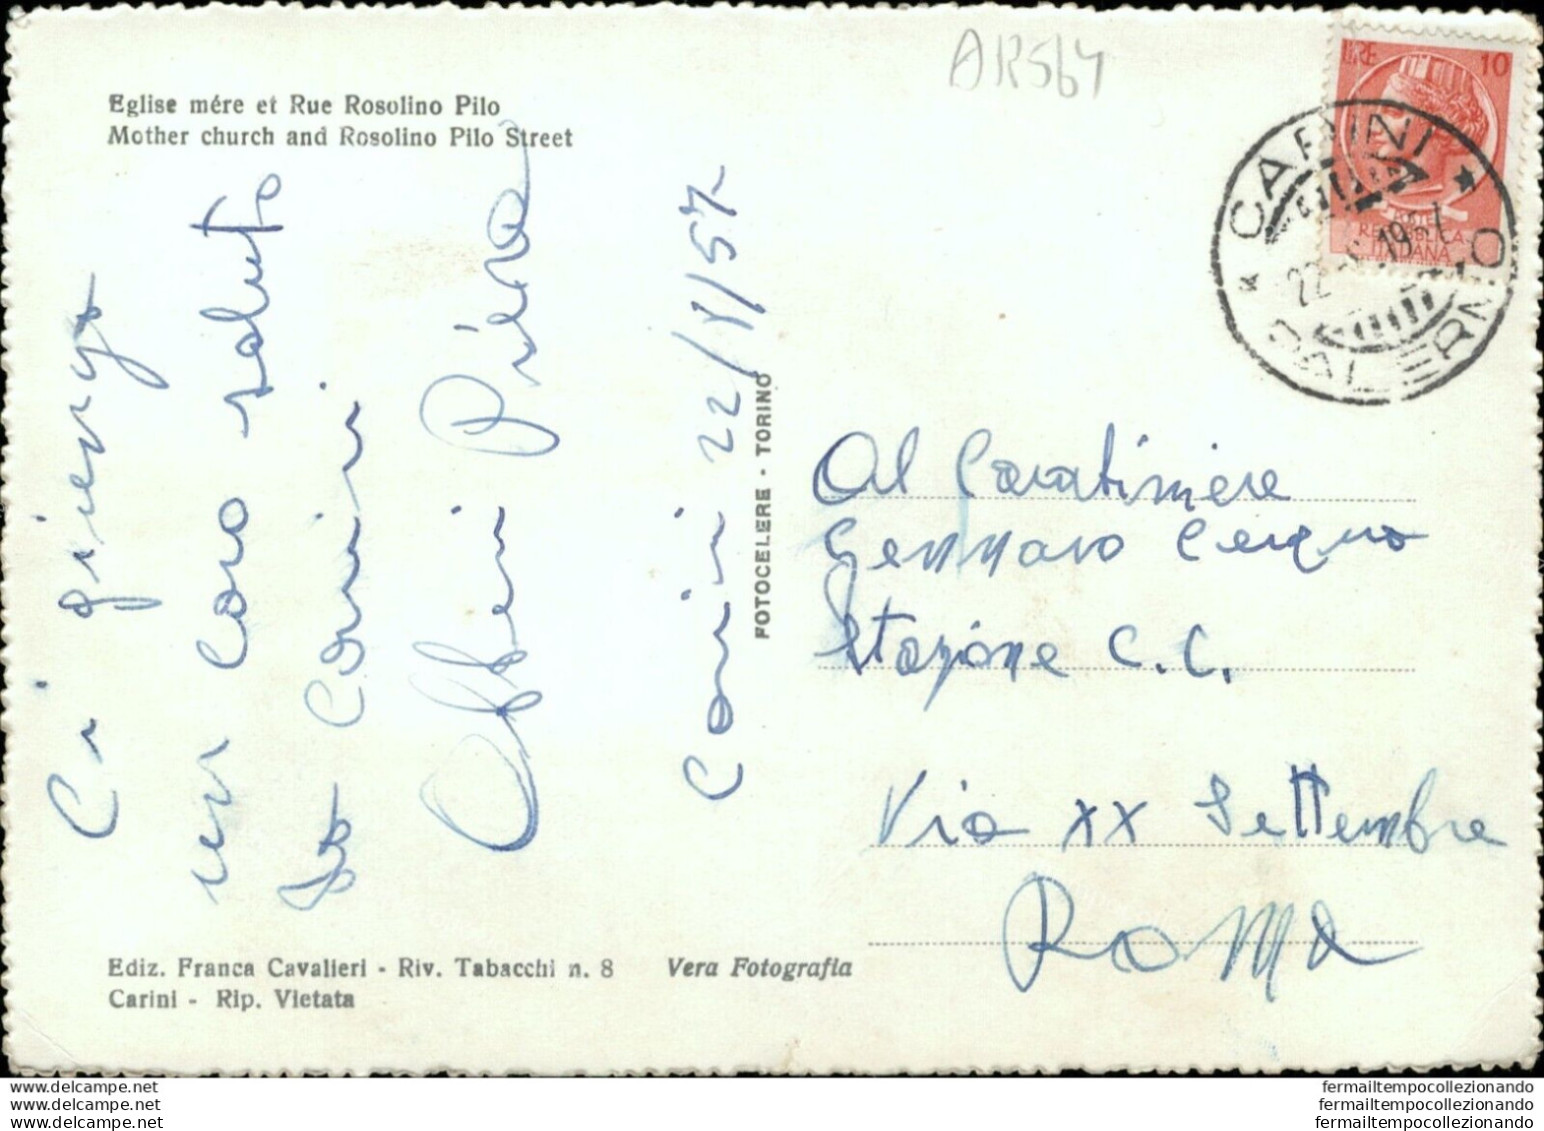 AR564
Eglise mére et Rue Rosolino Pilo
Mother church and Rosolino Pilo Street
LIRE 10
POSTE
REPUBBLICA
ITALIANA
* CARINI *
22 1957
PALERMO
Ci giunga
un caro saluto
da Carini
Piera
Carini 22/1/57
FOTOCELERE - TORINO
Al Carabiniere
Gennaro
Stazione C.C.
Via XX Settembre
ROMA
Ediz. Franca Cavalieri - Riv. Tabacchi n. 8
Carini - Rip. Vietata
Vera Fotografia
delcampe.net
delcampe.net
delcampe.net
fermailtempocollezionando
fermailtempocollezionando
fermailtempocollezionando